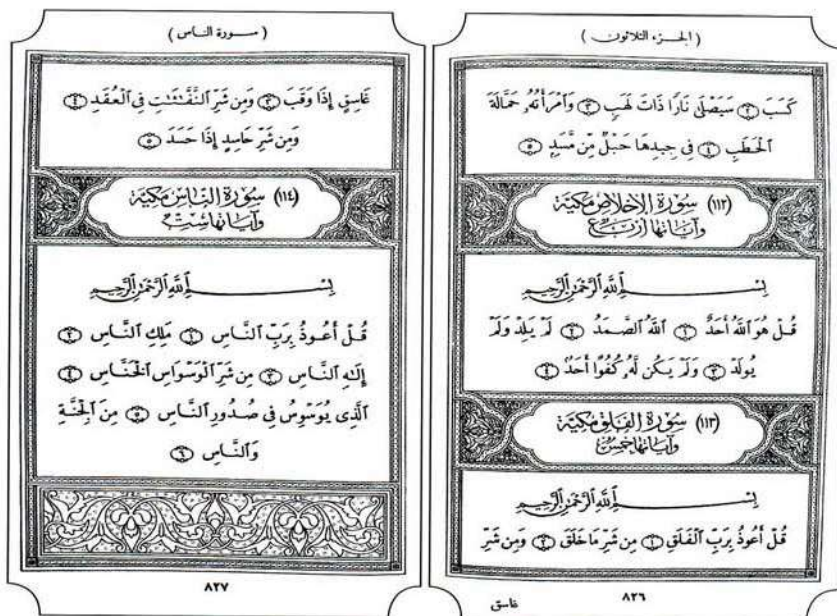 ( الجزء الثلاثون )
كَسَبَ ۝٢ سَيَصْلَىٰ نَارًا ذَاتَ لَهَبٍ ۝٣ وَٱمْرَأَتُهُۥ حَمَّالَةَ
ٱلْحَطَبِ ۝٤ فِى جِيدِهَا حَبْلٌ مِّن مَّسَدٍ ۝٥
(١١٢) سورة الإخلاص مكية
وآياتها أربع
بِسْمِ ٱللَّهِ ٱلرَّحْمَٰنِ ٱلرَّحِيمِ
قُلْ هُوَ ٱللَّهُ أَحَدٌ ۝١ ٱللَّهُ ٱلصَّمَدُ ۝٢ لَمْ يَلِدْ وَلَمْ
يُولَدْ ۝٣ وَلَمْ يَكُن لَّهُۥ كُفُوًا أَحَدٌ ۝٤
(١١٣) سورة الفلق مكية
وآياتها خمس
بِسْمِ ٱللَّهِ ٱلرَّحْمَٰنِ ٱلرَّحِيمِ
قُلْ أَعُوذُ بِرَبِّ ٱلْفَلَقِ ۝١ مِن شَرِّ مَا خَلَقَ ۝٢ وَمِن شَرِّ
غاسق
٨٢٦
( سورة الناس )
غَاسِقٍ إِذَا وَقَبَ ۝٣ وَمِن شَرِّ ٱلنَّفَّٰثَٰتِ فِى ٱلْعُقَدِ ۝٤
وَمِن شَرِّ حَاسِدٍ إِذَا حَسَدَ ۝٥
(١١٤) سورة الناس مكية
وآياتها ست
بِسْمِ ٱللَّهِ ٱلرَّحْمَٰنِ ٱلرَّحِيمِ
قُلْ أَعُوذُ بِرَبِّ ٱلنَّاسِ ۝١ مَلِكِ ٱلنَّاسِ ۝٢
إِلَٰهِ ٱلنَّاسِ ۝٣ مِن شَرِّ ٱلْوَسْوَاسِ ٱلْخَنَّاسِ ۝٤
ٱلَّذِى يُوَسْوِسُ فِى صُدُورِ ٱلنَّاسِ ۝٥ مِنَ ٱلْجِنَّةِ
وَٱلنَّاسِ ۝٦
٨٢٧